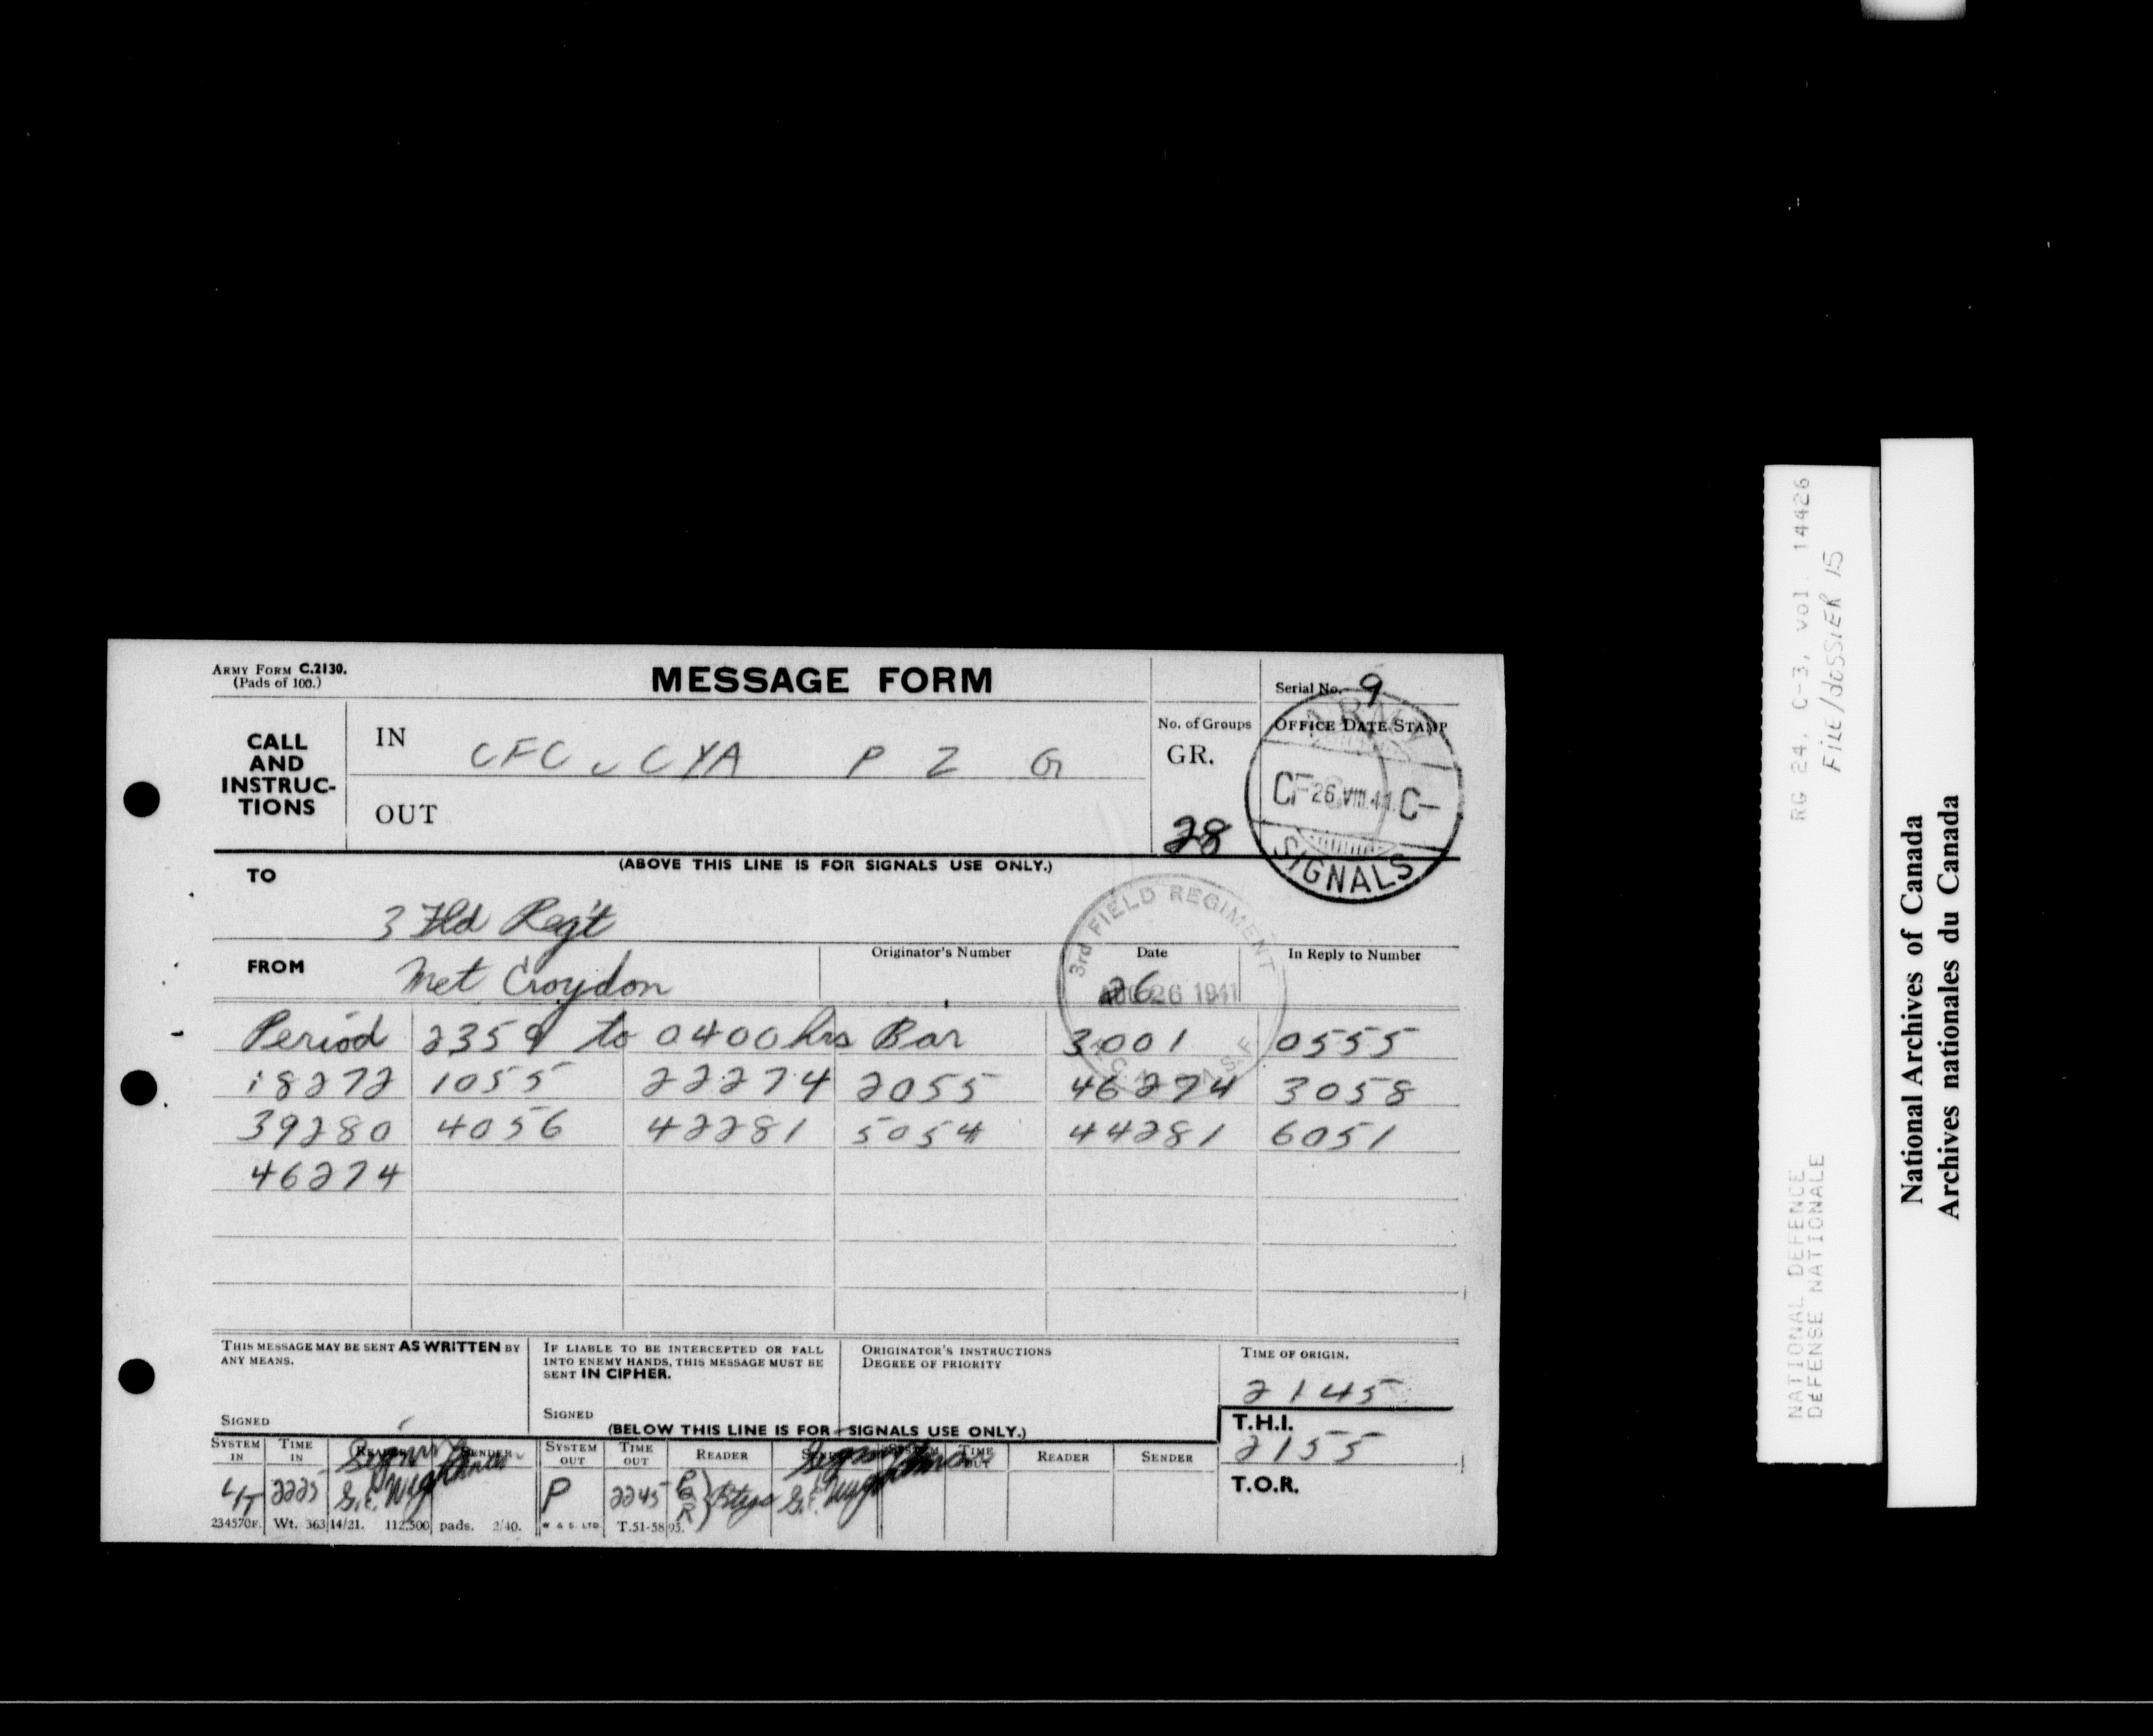 ARMY FORM C.2130.
(Pads of 100.)
MESSAGE FORM
Serial No. 9
CALL AND INSTRUC-TIONS
IN CFC v CYA P 2 G
OUT
No. of Groups
GR.
28
OFFICE DATE STAMP
ARMY
CF 26.VIII.41. C-
SIGNALS
(ABOVE THIS LINE IS FOR SIGNALS USE ONLY.)
TO
3 Fld Reg't
3rd FIELD REGIMENT
AUG 26 1941
FROM Met Croydon
Originator's Number
Date 26
In Reply to Number
Period 2359 to 0400 hrs Bar 3001 0555
18272 1055 22274 2055 46274 3058
39280 4056 42281 5054 44281 6051
46274
THIS MESSAGE MAY BE SENT AS WRITTEN BY
ANY MEANS.
SIGNED
IF LIABLE TO BE INTERCEPTED OR FALL
INTO ENEMY HANDS, THIS MESSAGE MUST BE
SENT IN CIPHER.
SIGNED
ORIGINATOR'S INSTRUCTIONS
DEGREE OF PRIORITY
TIME OF ORIGIN.
2145
T.H.I.
2155
T.O.R.
(BELOW THIS LINE IS FOR SIGNALS USE ONLY.)
SYSTEM IN TIME IN READER SENDER SYSTEM OUT TIME OUT READER SENDER SYSTEM TIME OUT READER SENDER
L/T 2225 G.E. P 2245 P Q R Btys G.E.
234570F. Wt. 363 14/21. 112,500 pads. 2/40. W & S. LTD. T.51-5895.
RG 24, C-3, vol. 14426
FILE/dOSSIER 15
NATIONAL DEFENCE
DÉFENSE NATIONALE
National Archives of Canada
Archives nationales du Canada